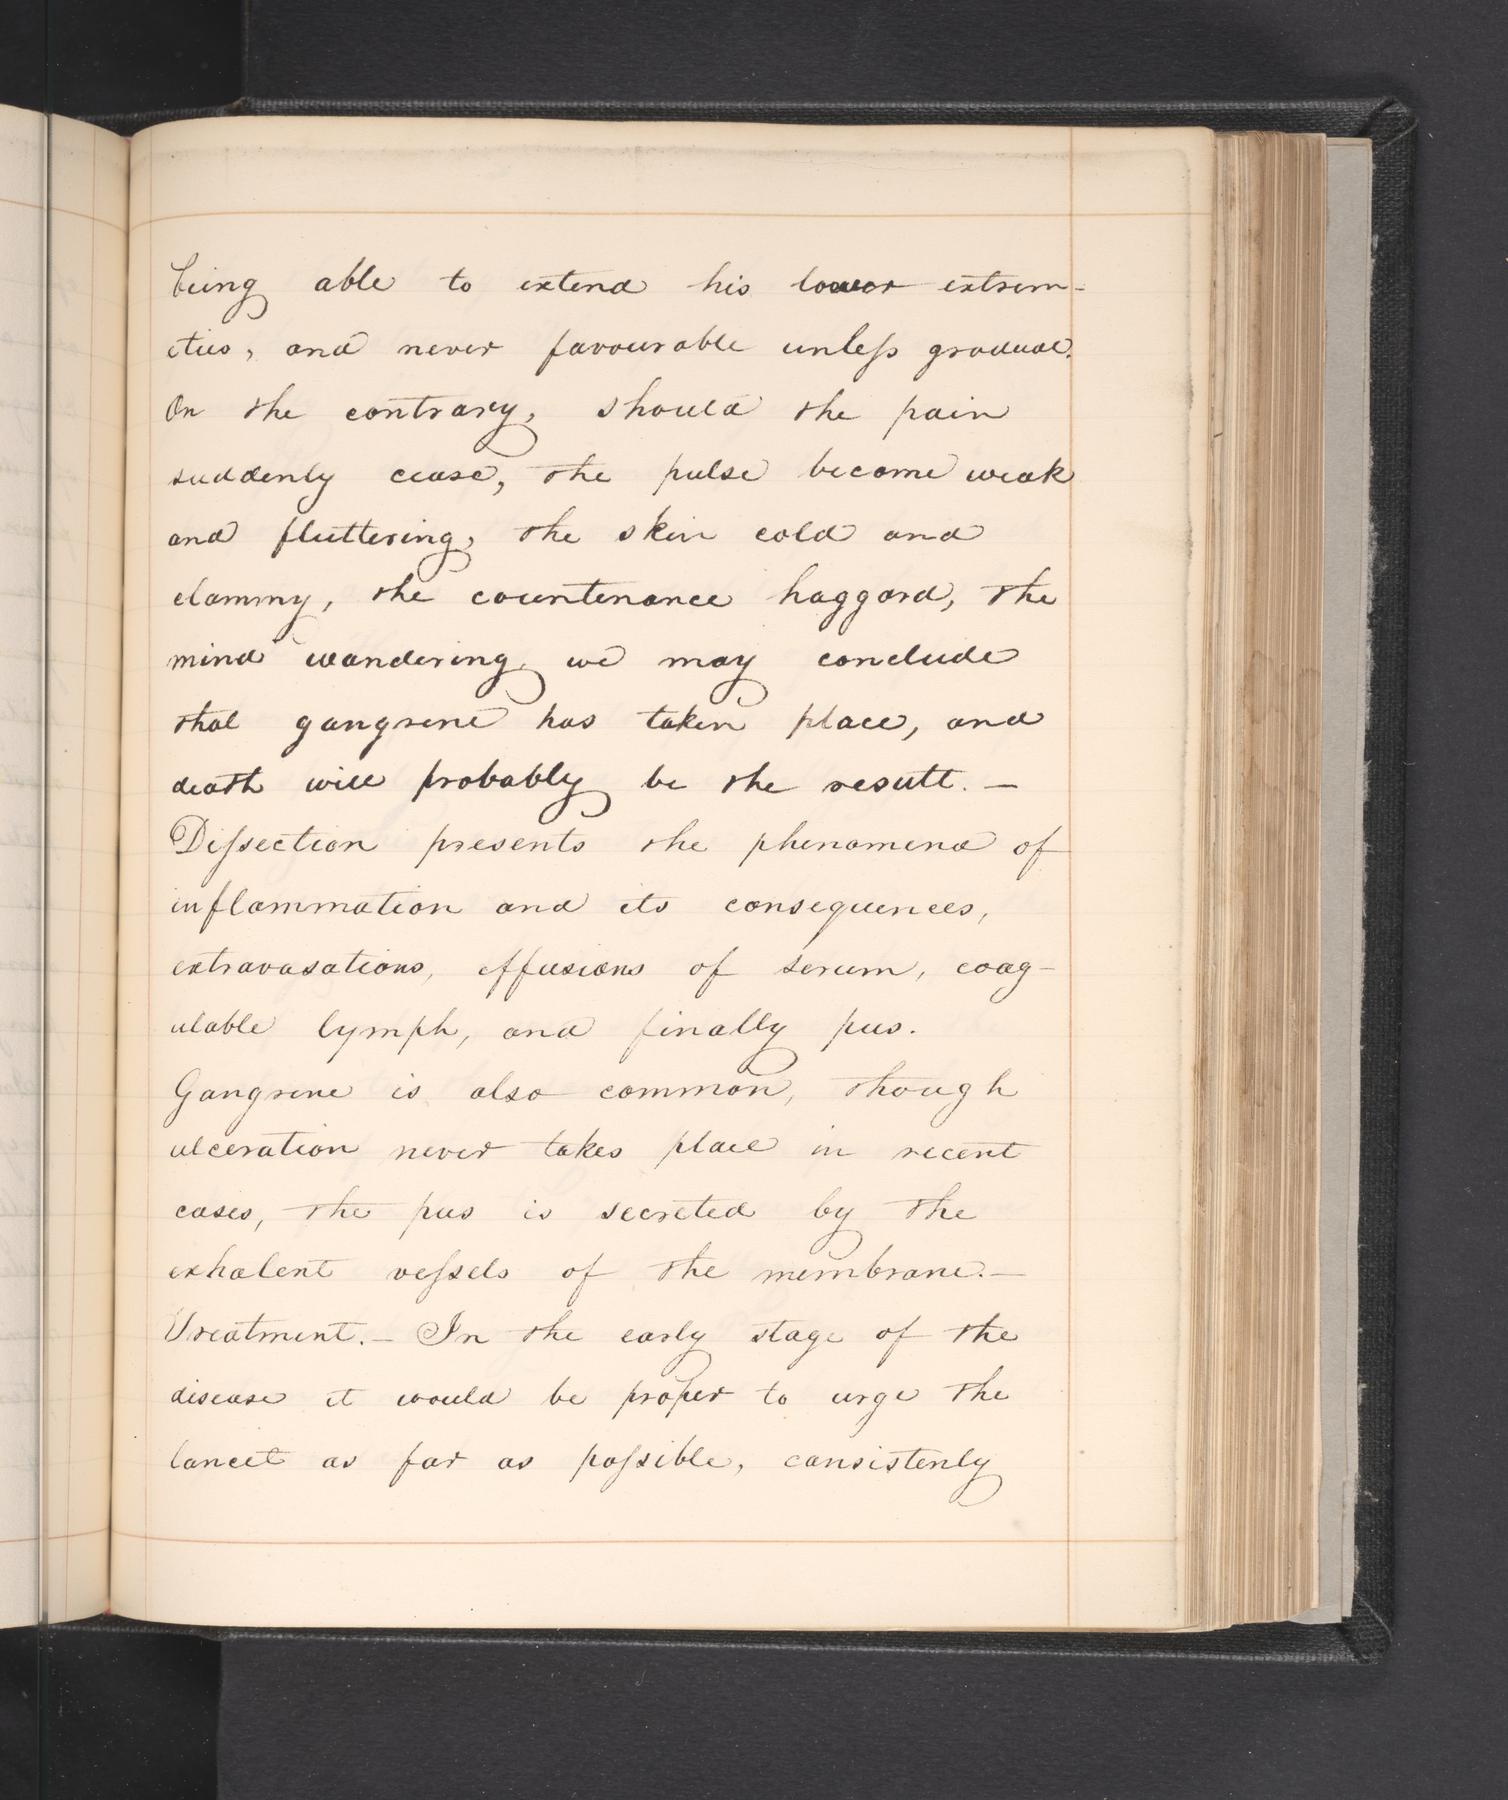 being able to extend his lower extrem-
eties, and never favourable unless gradual.
On the contrary, should the pain
suddenly cease, the pulse become weak
and fluttering, the skin cold and
clammy, the countenance haggard, the
mind wandering, we may conclude
that gangrene has taken place, and
death will probably be the result. —
Dissection presents the phenomena of
inflammation and its consequences,
extravasations, effusions of serum, coag-
ulable lymph, and finally pus.
Gangrene is also common, though
ulceration never takes place in recent
cases, the pus is secreted by the
exhalent vessels of the membrane. —
Treatment. — In the early stage of the
disease it would be proper to urge the
lancet as far as possible, consistenly